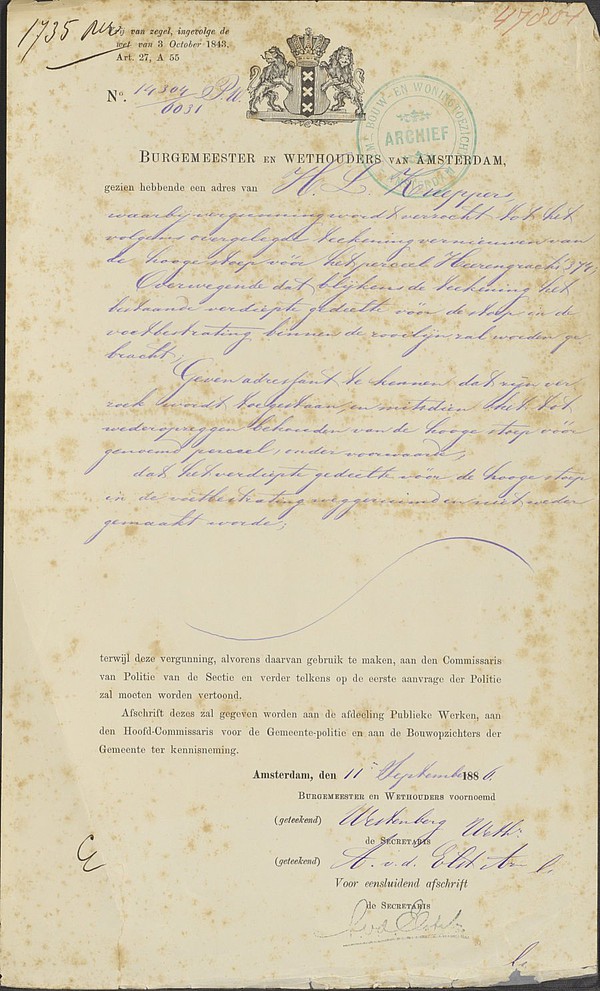 1735
47807
Vrij van zegel, ingevolge de
wet van 3 October 1843,
Art. 27, A 55
No. 14304 P.W.
0031
BOUW- EN WONINGTOEZICHT
ARCHIEF
BURGEMEESTER EN WETHOUDERS VAN AMSTERDAM,
gezien hebbende een adres van H. L. Kueppers,
waarbij vergunning wordt verzocht tot het
volgens overgelegde teekening vernieuwen van
de hooge stoep vóór het perceel Heerengracht 374;
Overwegende dat, blijkens de teekening het
bestaande verdiepte gedeelte vóór de stoep in de
voetbestrating binnen de rooilijn zal worden ge
bracht;
Geven adressant te kennen dat zijn ver
zoek wordt toegestaan, en mitsdien het tot
wederopzeggen behouden van de hooge stoep vóór
genoemd perceel, onder voorwaarde;
dat het verdiepte gedeelte vóór de hooge stoep
in de voetbestrating weggeruimd en niet weder
gemaakt worde;
terwijl deze vergunning, alvorens daarvan gebruik te maken, aan den Commissaris
van Politie van de Sectie en verder telkens op de eerste aanvrage der Politie
zal moeten worden vertoond.
Afschrift dezes zal gegeven worden aan de afdeeling Publieke Werken, aan
den Hoofd-Commissaris voor de Gemeente-politie en aan de Bouwopzichters der
Gemeente ter kennisneming.
Amsterdam, den 11 September 1886.
BURGEMEESTER EN WETHOUDERS voornoemd
(geteekend) Westenberg Weth.
de SECRETARIS
(geteekend) A. v. d. Elst
Voor eensluidend afschrift
de SECRETARIS